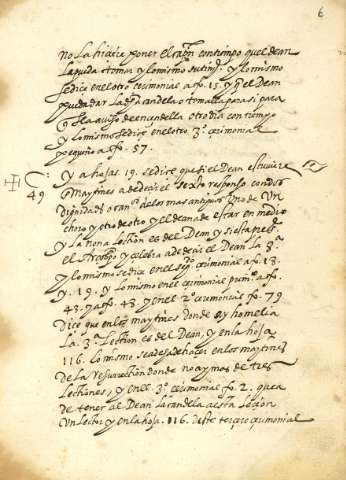 6
no la hiciera poner el con tiempo que el dean
la pueda tomar y lo mismo
se dice en el otro cerimonial a fo. 15. y q̃ el Dean
pueda dar la candela o tomalla para si para
q̃ lleve con tiempo
y lo mismo se dize en el otro 3º cerimonial
pequeño a fo. 57.
49
y a hojas 19. se dize que si el Dean estuviere
Maytines a de decir el sexto responso con dos
dignidades o can.ºs de los mas antiguos Uno de Un
choro y otro de otro y el dean a de estar en medio
y la nona lection es del Dean y si esta
el Arçobpo y celebra a de decir el Dean la 8.ª
y lo mismo se dice en el cerimonial a fo. 13.
y. 19. y lo mismo en el cerimonial prim.º a fo.
43. y a fo. 48 y en el 2º cerimonial fo. 79
Dice que en los maytines donde ay homelia
la 3ª Lection es del Dean, y en la hoja
116. lo mismo se a de hacer en los maytines
de la resurrection donde no ay mas de tres
Lectiones, y en el 3º cerimonial fo. 2. que a
de tener al Dean la candela a esta lection
Un lector y en la hoja. 116. deste tercero cerimonial